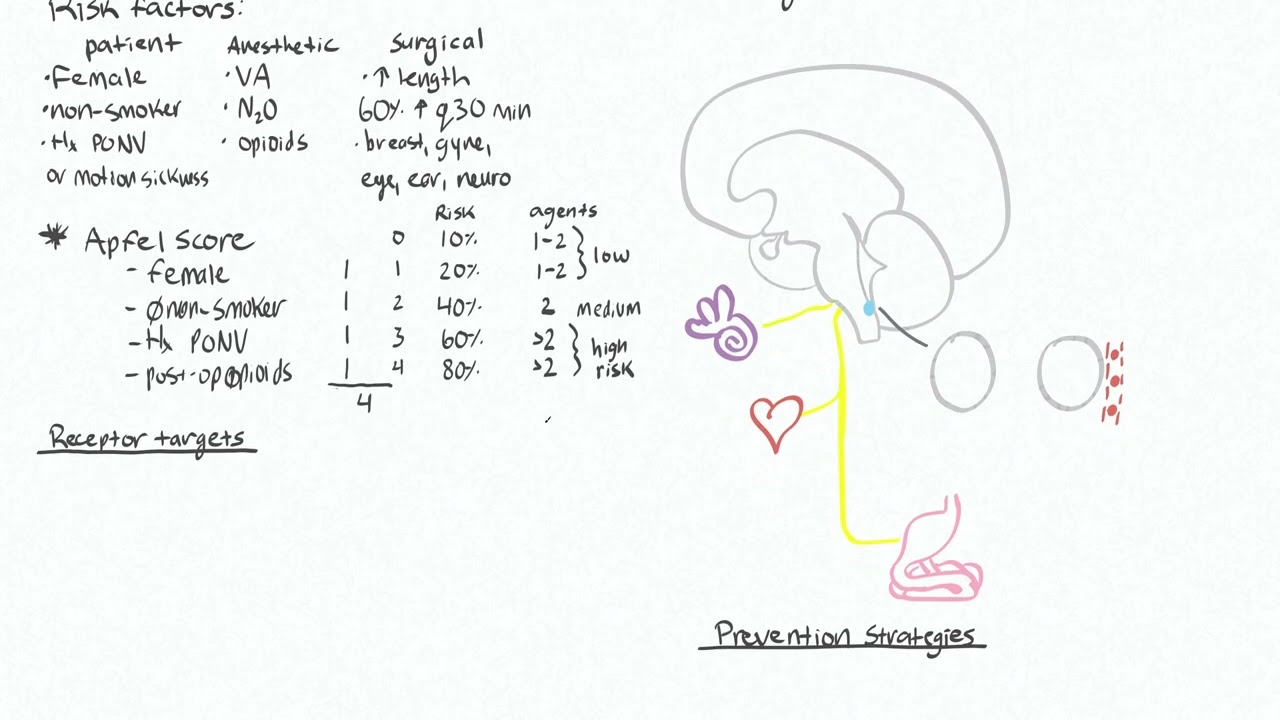 Risk factors:
patient Anesthetic Surgical
·Female ·VA ·↑ length
·non-smoker ·N₂O 60% ↑ q30 min
·Hx PONV ·opioids ·breast, gyne,
or motion sickness eye, ear, neuro
Risk agents
* Apfel Score 0 10% 1-2
- female 1 1 20% 1-2 } low
- Ønon-smoker 1 2 40% 2 medium
- Hx PONV 1 3 60% >2 } high
- post-op opioids 1 4 80% >2 risk
4
Receptor targets
Prevention Strategies